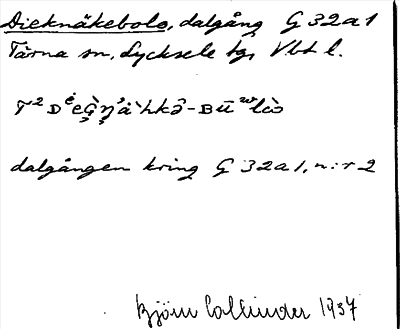 Dieknäkebolo, dalgång G 32a1
Tärna sn, Lycksele lg, Vbt l.
dalgången kring G 32a1, n:r 2
Björn Collinder 1937